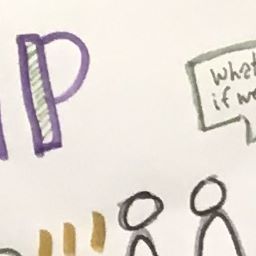 P
What
if we